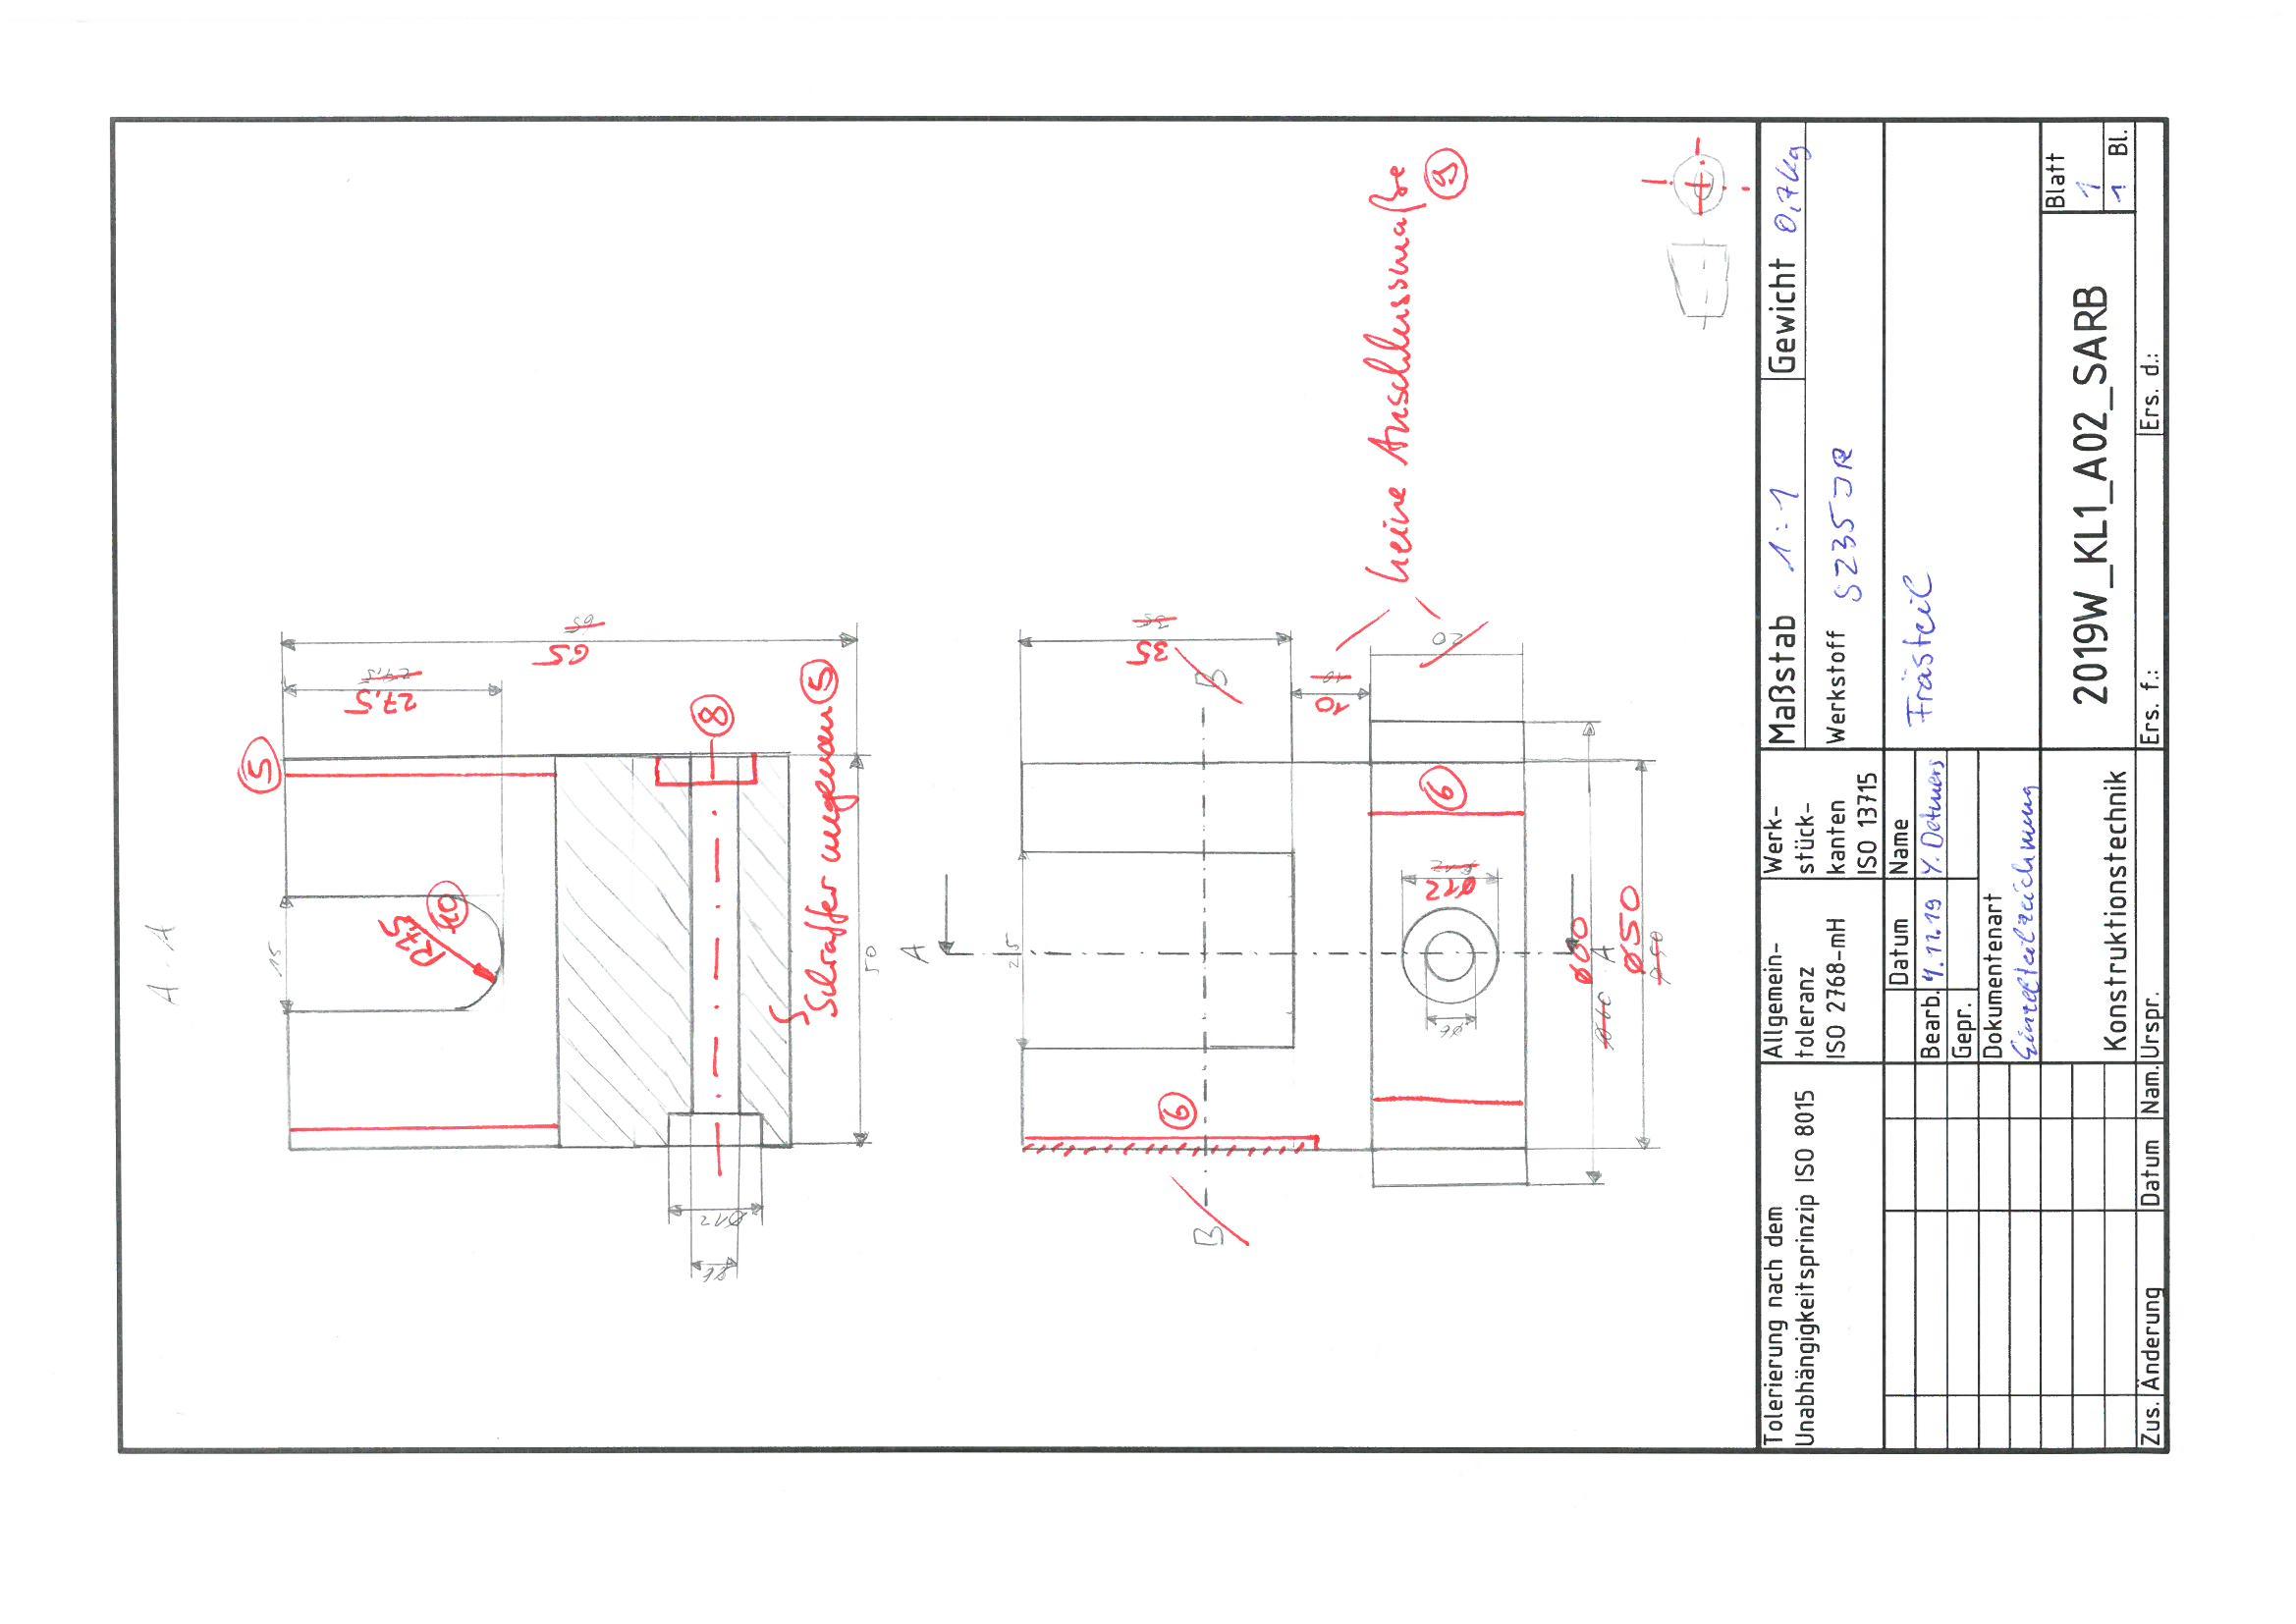 A-A
15
R7,5
10
5
27,5
27,5
65
65
8
5
Schraffer ungenau
50
Ø12
A
25
35
35
B
B
10
10
20
keine Anschlussmaße
9
6
6
Ø12
Ø12
Ø60
Ø60
A
Ø50
Ø50
Tolerierung nach dem
Unabhängigkeitsprinzip ISO 8015
Allgemein-
toleranz
ISO 2768-mH
Werk-
stück-
kanten
ISO 13715
Maßstab 1:1
Gewicht 0,7kg
Werkstoff S235JR
Datum
Name
Bearb. 4.11.19 Y. Detmers
Gepr.
Frästeil
Dokumentenart
Einzelteilzeichnung
Konstruktionstechnik
2019W_KL1_A02_SARB
Blatt
1
1 Bl.
Zus.
Änderung
Datum
Nam.
Urspr.
Ers. f.:
Ers. d.: